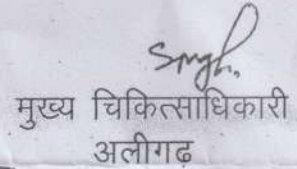 Singh.
मुख्य चिकित्साधिकारी
अलीगढ़